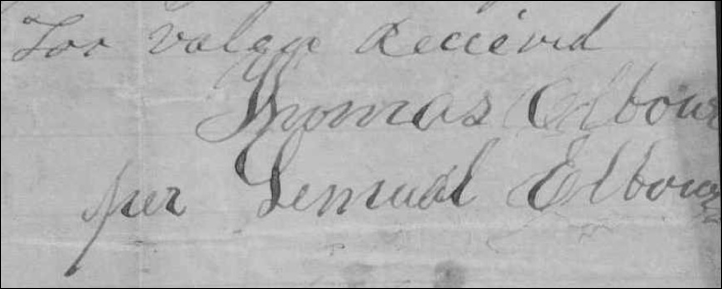 For valau Recievd
Thomas Elbour
per Lemual Elbour